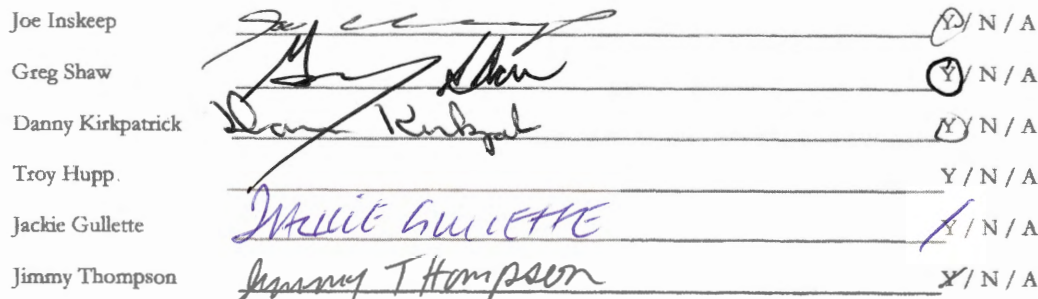 Joe Inskeep Joe Y / N / A
Greg Shaw Greg Shaw Y / N / A
Danny Kirkpatrick Kirkpat Y / N / A
Troy Hupp Y / N / A
Jackie Gullette JACKIE GULLETTE Y / N / A
Jimmy Thompson Jimmy THompson Y / N / A